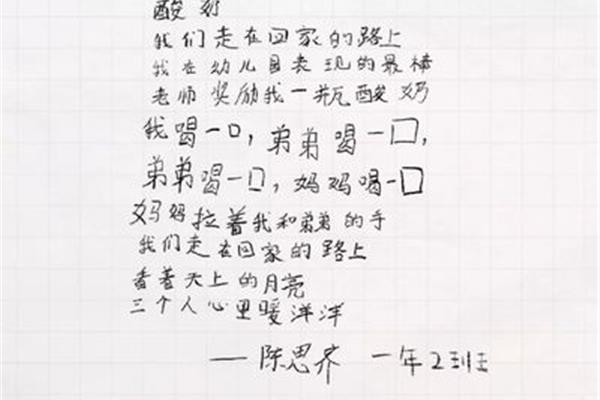 酸奶
我们走在回家的路上
我在幼儿园表现的最棒
老师奖励我一瓶酸奶
我喝一口，弟弟喝一口，
弟弟喝一口，妈妈喝一口
妈妈拉着我和弟弟的手
我们走在回家的路上
看着天上的月亮
三个人心里暖洋洋
——陈思齐 一年2班